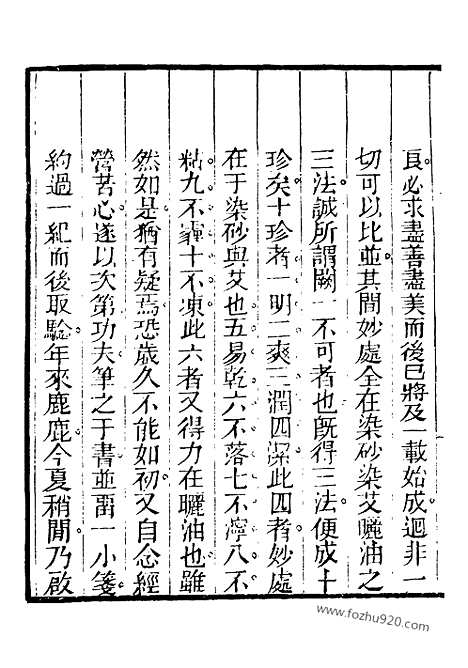 良必求盡善盡美而後已將及一載始成迥非一
切可以比並其間妙處全在染砂染艾曬油之
三法誠所謂闕一不可者也旣得三法便成十
珍矣十珍者一明二爽三潤四深此四者妙處
在于染砂與艾也五易乾六不落七不濘八不
粘九不霾十不凍此六者又得力在曬油也雖
然如是猶有疑焉恐歲久不能如初又自念經
營苦心遂以次第功夫筆之于書並畱一小箋
約過一紀而後取驗年來鹿鹿今夏稍閒乃啟
www.fozhu920.com